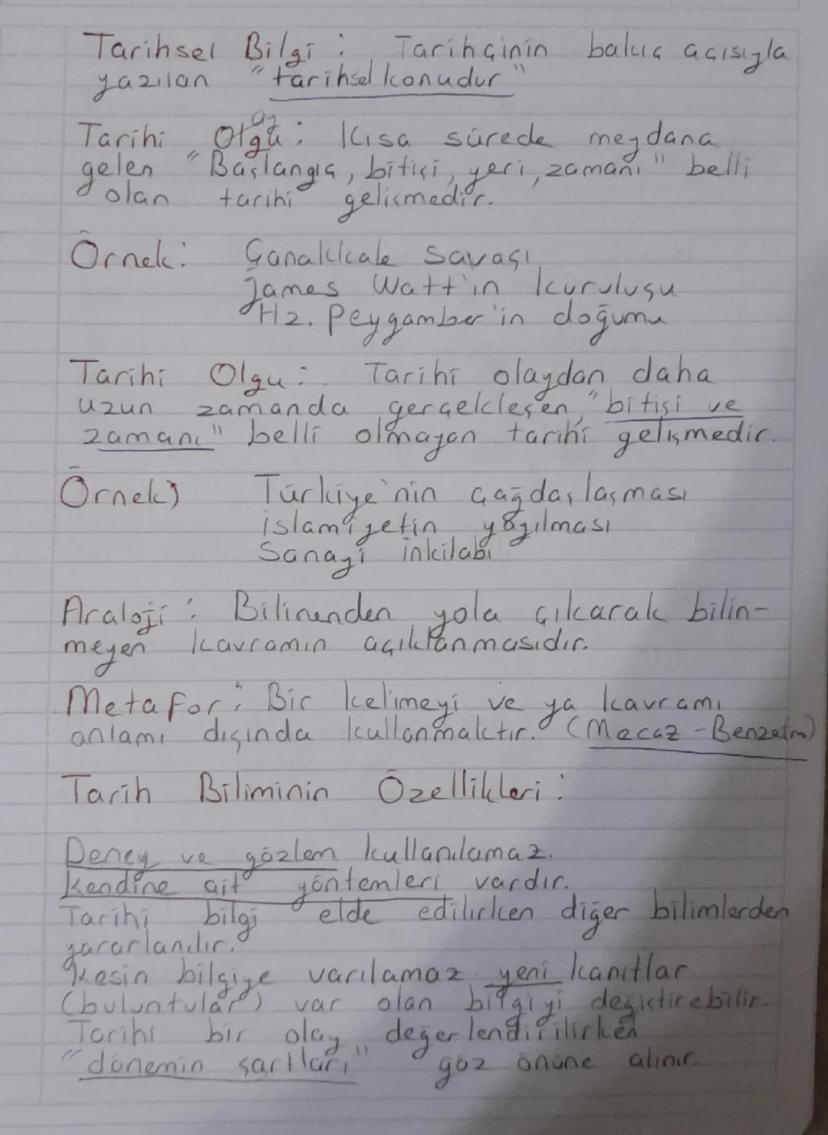 Tarihsel Bilgi : Tarihçinin bakış açısıyla
yazılan "tarihsel konudur"
Tarihi Olay : Kısa sürede meydana
gelen "Başlangıç, bitişi, yeri, zamanı" belli
olan tarihi gelişmedir.
Örnek: Çanakkale Savaşı
James Watt'ın kuruluşu
Hz. Peygamber'in doğumu
Tarihi Olgu: Tarihi olaydan daha
uzun zamanda gerçekleşen "bitişi ve
zamanı" belli olmayan tarihi gelişmedir.
Örnek) Türkiye'nin çağdaşlaşması
islamiyetin yayılması
Sanayi inkilabı
Analoji : Bilinenden yola çıkarak bilin-
meyen kavramın açıklanmasıdır.
Metafor : Bir kelimeyi ve ya kavramı
anlamı dışında kullanmaktır. (Mecaz - Benzetm)
Tarih Biliminin Özellikleri :
Deney ve gözlem kullanılamaz.
Kendine ait yöntemleri vardır.
Tarihi bilgi elde edilirken diğer bilimlerden
yararlanılır.
Kesin bilgiye varılamaz yeni kanıtlar
(buluntular) var olan bilgiyi değiştirebilir.
Tarihi bir olay değerlendirilirken
"dönemin şartları" göz önüne alınır.